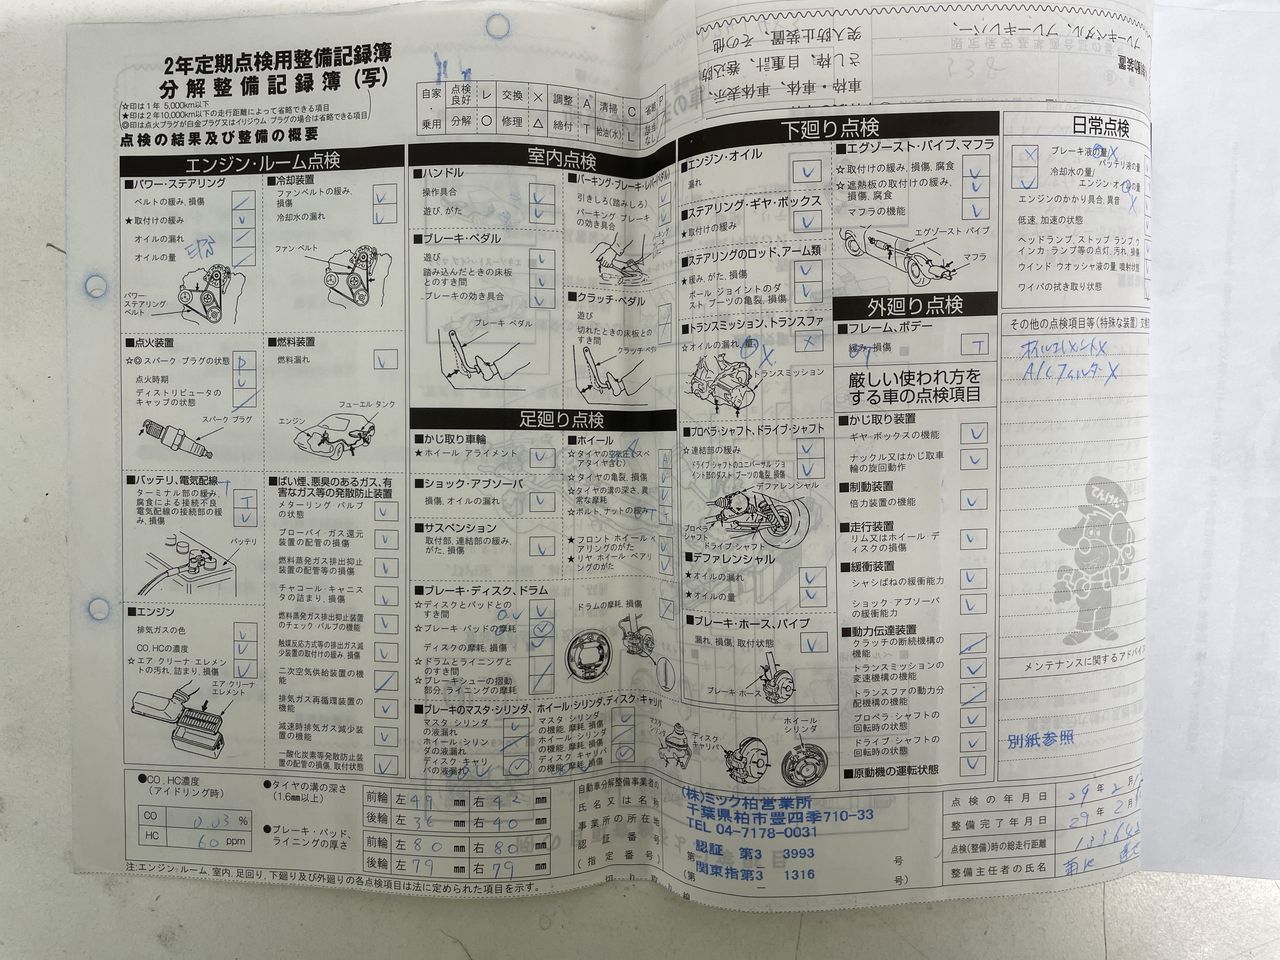 2年定期点検用整備記録簿
分解整備記録簿(写)
☆印は1年 5,000km以下
★印は2年10,000km以下の走行距離によって省略できる項目
◎印は点火プラグが白金プラグ又はイリジウム プラグの場合は省略できる項目
点検の結果及び整備の概要
自家・乗用
点検良好 レ 交換 × 調整 A 清掃 C
分解 ○ 修理 △ 締付 T 給油(水) L
エンジン・ルーム点検
■パワー・ステアリング
ベルトの緩み、損傷
★取付けの緩み
オイルの漏れ
オイルの量
パワー・ステアリング ベルト
■点火装置
☆◎スパーク プラグの状態 P
点火時期
ディストリビュータのキャップの状態
スパーク プラグ
■バッテリ、電気配線
ターミナル部の緩み、腐食による接続不良
電気配線の接続部の緩み、損傷
T
バッテリ
■エンジン
排気ガスの色
CO、HCの濃度
☆エア クリーナ エレメントの汚れ、詰まり、損傷
エア クリーナ エレメント
■冷却装置
ファンベルトの緩み、損傷
冷却水の漏れ
ファン ベルト
■燃料装置
燃料漏れ
フューエル タンク
エンジン
■ばい煙、悪臭のあるガス、有害なガス等の発散防止装置
メターリング バルブの状態
ブローバイ ガス還元装置の配管の損傷
燃料蒸発ガス排出抑止装置の配管等の損傷
チャコール キャニスタの詰まり、損傷
燃料蒸発ガス排出抑止装置のチェック バルブの機能
触媒反応方式等の排出ガス減少装置の取付けの緩み、損傷
二次空気供給装置の機能
排気ガス再循環装置の機能
減速時排気ガス減少装置の機能
一酸化炭素等発散防止装置の配管の損傷、取付状態
室内点検
■ハンドル
操作具合
遊び、がた
■ブレーキ・ペダル
遊び
踏み込んだときの床板とのすき間
ブレーキの効き具合
ブレーキ ペダル
引きしろ(踏みしろ)
パーキング ブレーキの効き具合
■クラッチ・ペダル
遊び
切れたときの床板とのすき間
足廻り点検
■かじ取り車輪
★ホイール アライメント
■ショック・アブソーバ
損傷、オイルの漏れ
■サスペンション
取付部、連結部の緩み、がた、損傷
■ブレーキ・ディスク、ドラム
☆ディスクとパッドとのすき間
☆ブレーキ パッドの摩耗
ディスクの摩耗、損傷
☆ドラムとライニングとのすき間
☆ブレーキシューの摺動部分、ライニングの摩耗
ドラムの摩耗、損傷
■ホイール
☆タイヤの亀裂、損傷
☆タイヤの溝の深さ、異常な摩耗
☆ボルト、ナットの緩み
★フロント ホイール ベアリングのがた
★リヤ ホイール ベアリングのがた
■ブレーキのマスタ・シリンダ、ホイール・シリンダ、ディスク・キャリパ
マスタ シリンダの液漏れ
ホイール シリンダの液漏れ
ディスク キャリパの液漏れ
マスタ シリンダの機能、摩耗、損傷
ホイール シリンダの機能、摩耗、損傷
ディスク キャリパの機能、摩耗、損傷
マスタ シリンダ
ディスク キャリパ
ホイール シリンダ
下廻り点検
■エンジン・オイル
漏れ
■ステアリング・ギヤ・ボックス
★取付けの緩み
■ステアリングのロッド、アーム類
★緩み、がた、損傷
ボール ジョイントのダスト、ブーツの亀裂、損傷
■トランスミッション、トランスファ
☆オイルの漏れ、量
トランスミッション
■プロペラ・シャフト、ドライブ・シャフト
☆連結部の緩み
ドライブ・シャフトのユニバーサル ジョイント部のダスト ブーツの亀裂、損傷
デファレンシャル
プロペラ シャフト
ドライブ・シャフト
■デファレンシャル
★オイルの漏れ
★オイルの量
■ブレーキ・ホース、パイプ
漏れ、損傷、取付状態
ブレーキ ホース
■エグゾースト・パイプ、マフラ
☆取付けの緩み、損傷、腐食
☆遮熱板の取付けの緩み、損傷、腐食
マフラの機能
エグゾースト・パイプ
マフラ
外廻り点検
■フレーム、ボデー
緩み、損傷 T
厳しい使われ方をする車の点検項目
■かじ取り装置
ギヤ・ボックスの機能
ナックル又はかじ取車輪の旋回動作
■制動装置
倍力装置の機能
■走行装置
リム又はホイール ディスクの損傷
■緩衝装置
シャシばねの緩衝能力
ショック アブソーバの緩衝能力
■動力伝達装置
クラッチの断続機構の機能
トランスミッションの変速機構の機能
トランスファの動力分配機構の機能
プロペラ・シャフトの回転時の状態
ドライブ・シャフトの回転時の状態
■原動機の運転状態
日常点検
ブレーキ液の量/
バッテリ液の量
冷却水の量/
エンジン・オイルの量
エンジンのかかり具合、異音
低速、加速の状態
ヘッドランプ、ストップ ランプ、ウインカ ランプ等の点灯、汚れ、損傷
ウインド ウオッシャ液の量、噴射状態
ワイパの拭き取り状態
その他の点検項目等(特殊な装置)
オイルエレメント×
A/Cフィルター×
てんけんくん
メンテナンスに関するアドバイス
別紙参照
●CO、HC濃度
(アイドリング時)
CO 0.03 %
HC 60 ppm
●タイヤの溝の深さ
(1.6mm以上)
前輪 左 49 mm 右 42 mm
後輪 左 36 mm 右 40 mm
●ブレーキ・パッド、ライニングの厚さ
前輪 左 80 mm 右 80 mm
後輪 左 79 mm 右 79 mm
自動車分解整備事業者の
氏名又は名称
事業所の所在地
認証番号
(指定番号)
(株)ミック柏営業所
千葉県柏市豊四季710-33
TEL 04-7178-0031
認証 第3 3993
関東指第3 1316
第 号
(第 号)
点検の年月日 29年2月
整備完了年月日 29年2月
点検(整備)時の総走行距離
整備主任者の氏名
注:エンジン・ルーム、室内、足廻り、下廻り及び外廻りの各点検項目は法に定められた項目を示す。
切り取り線
ブレーキペダル、ブレーキレバー、
車枠・車体、車体表示、
さし枠、自重計、巻込防
突入防止装置、その他